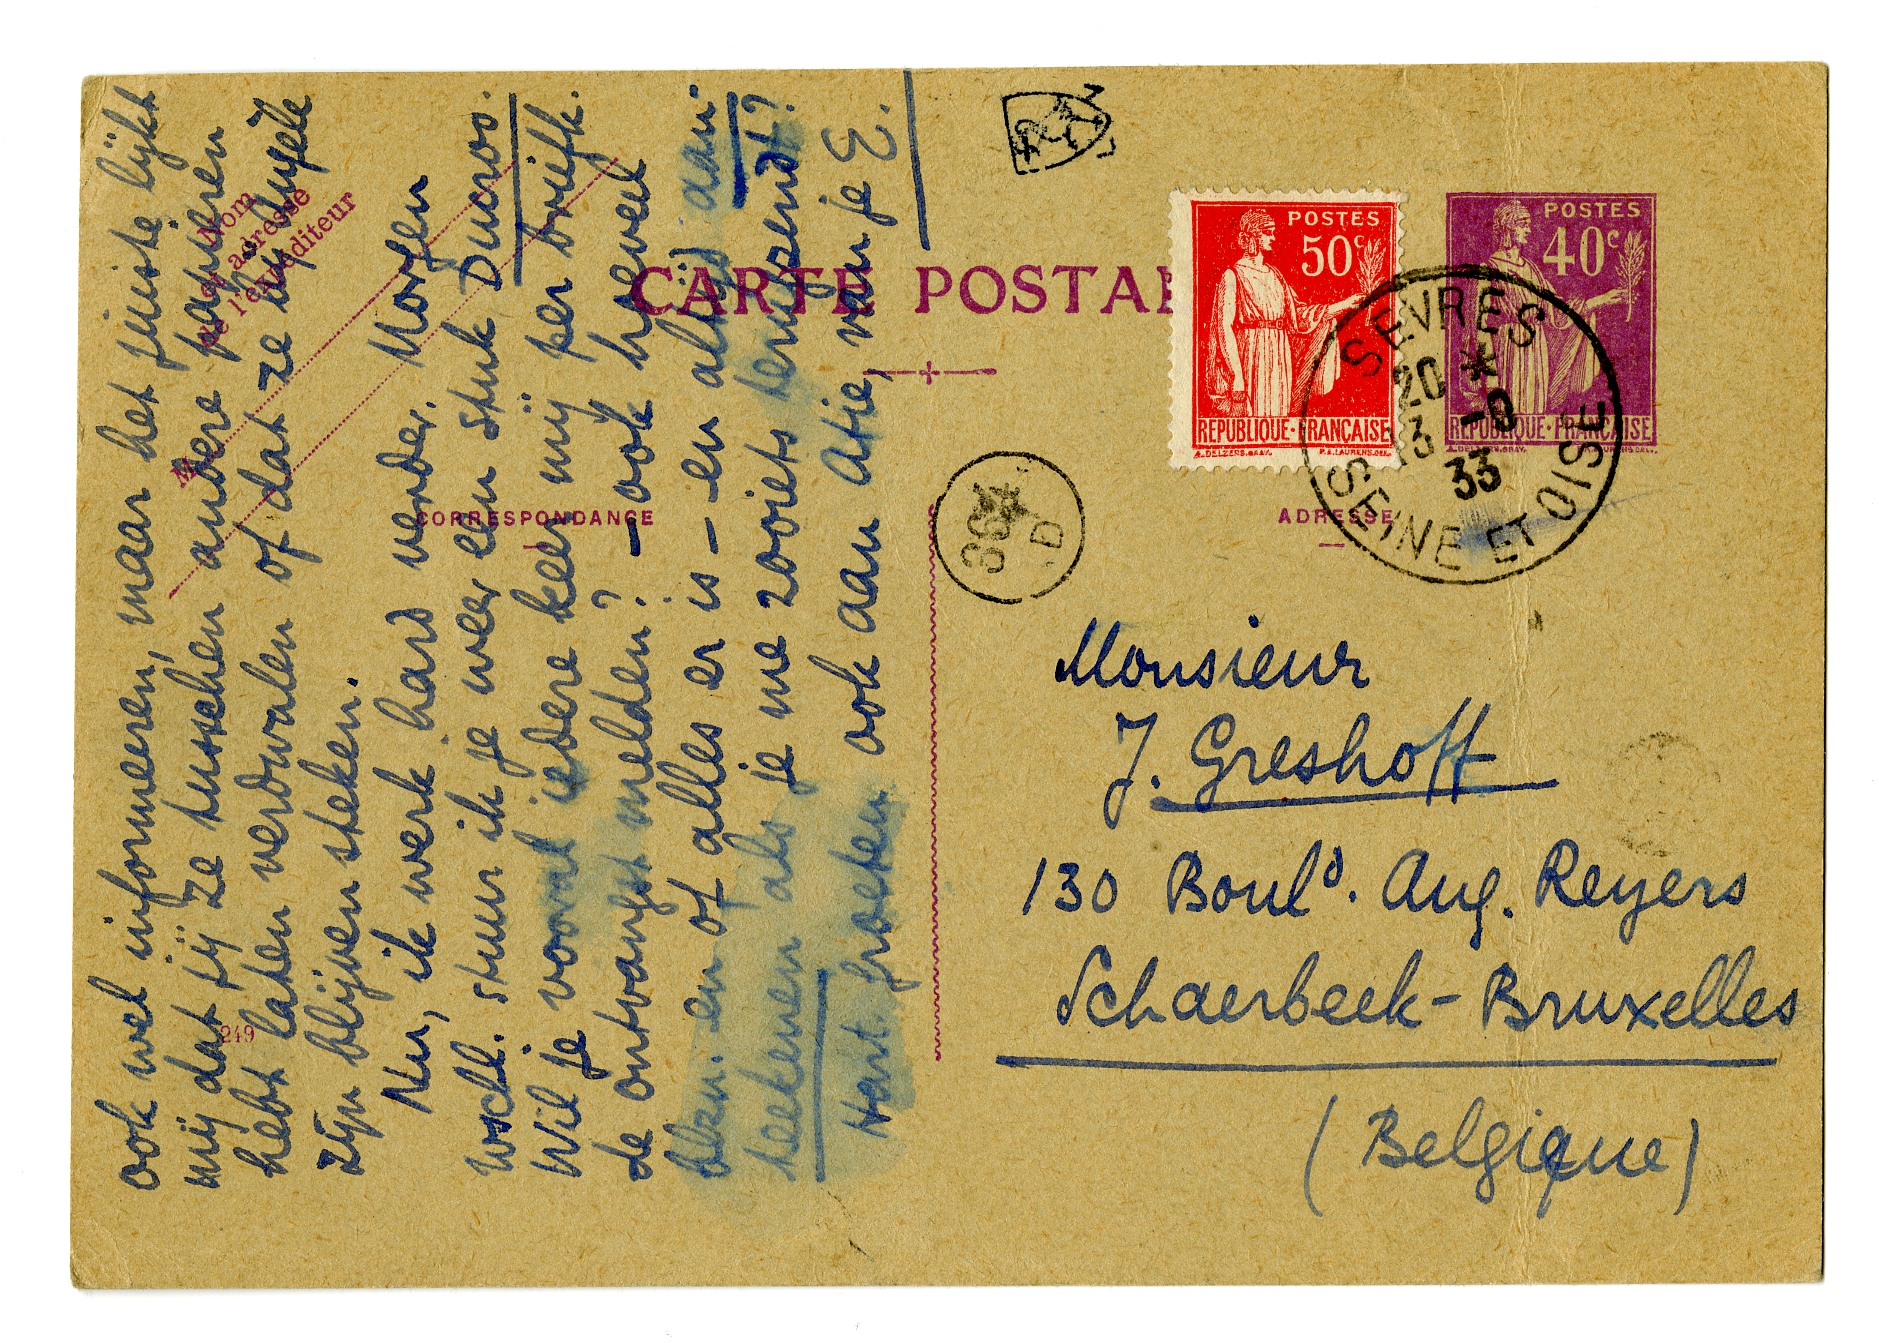 ook wel informeeren, maar het juiste lijkt
mij dat jij ze tusschen andere papieren
hebt laten verdwalen of dat ze bij Duyele
zijn blijven steken.
Nu, ik werk hard verder. Morgen
stuur ik je weer een stuk Ducroo.
Wil je vooral iedere keer mij per briefk.
de ontvangst melden? – ook hoeveel
blzn. en of alles er is – en altijd aan-
teekenen als je me zooiets terugzendt?
Hart. groeten ook aan Atie, van je E.
Nom
et adresse
de l'expéditeur
M
CORRESPONDANCE
249
CARTE POSTA
POSTES
50c
REPUBLIQUE·FRANÇAISE
J. DELZERS. GRAV. P.A. LAURENS. DEL.
POSTES
40c
REPUBLIQUE·FRANÇAISE
SEVRES
20 *
13 -9
33
SEINE ET OISE
D
ADRESSE
Monsieur
J. Greshoff
130 Bould. Aug. Reyers
Schaerbeek–Bruxelles
(Belgique)